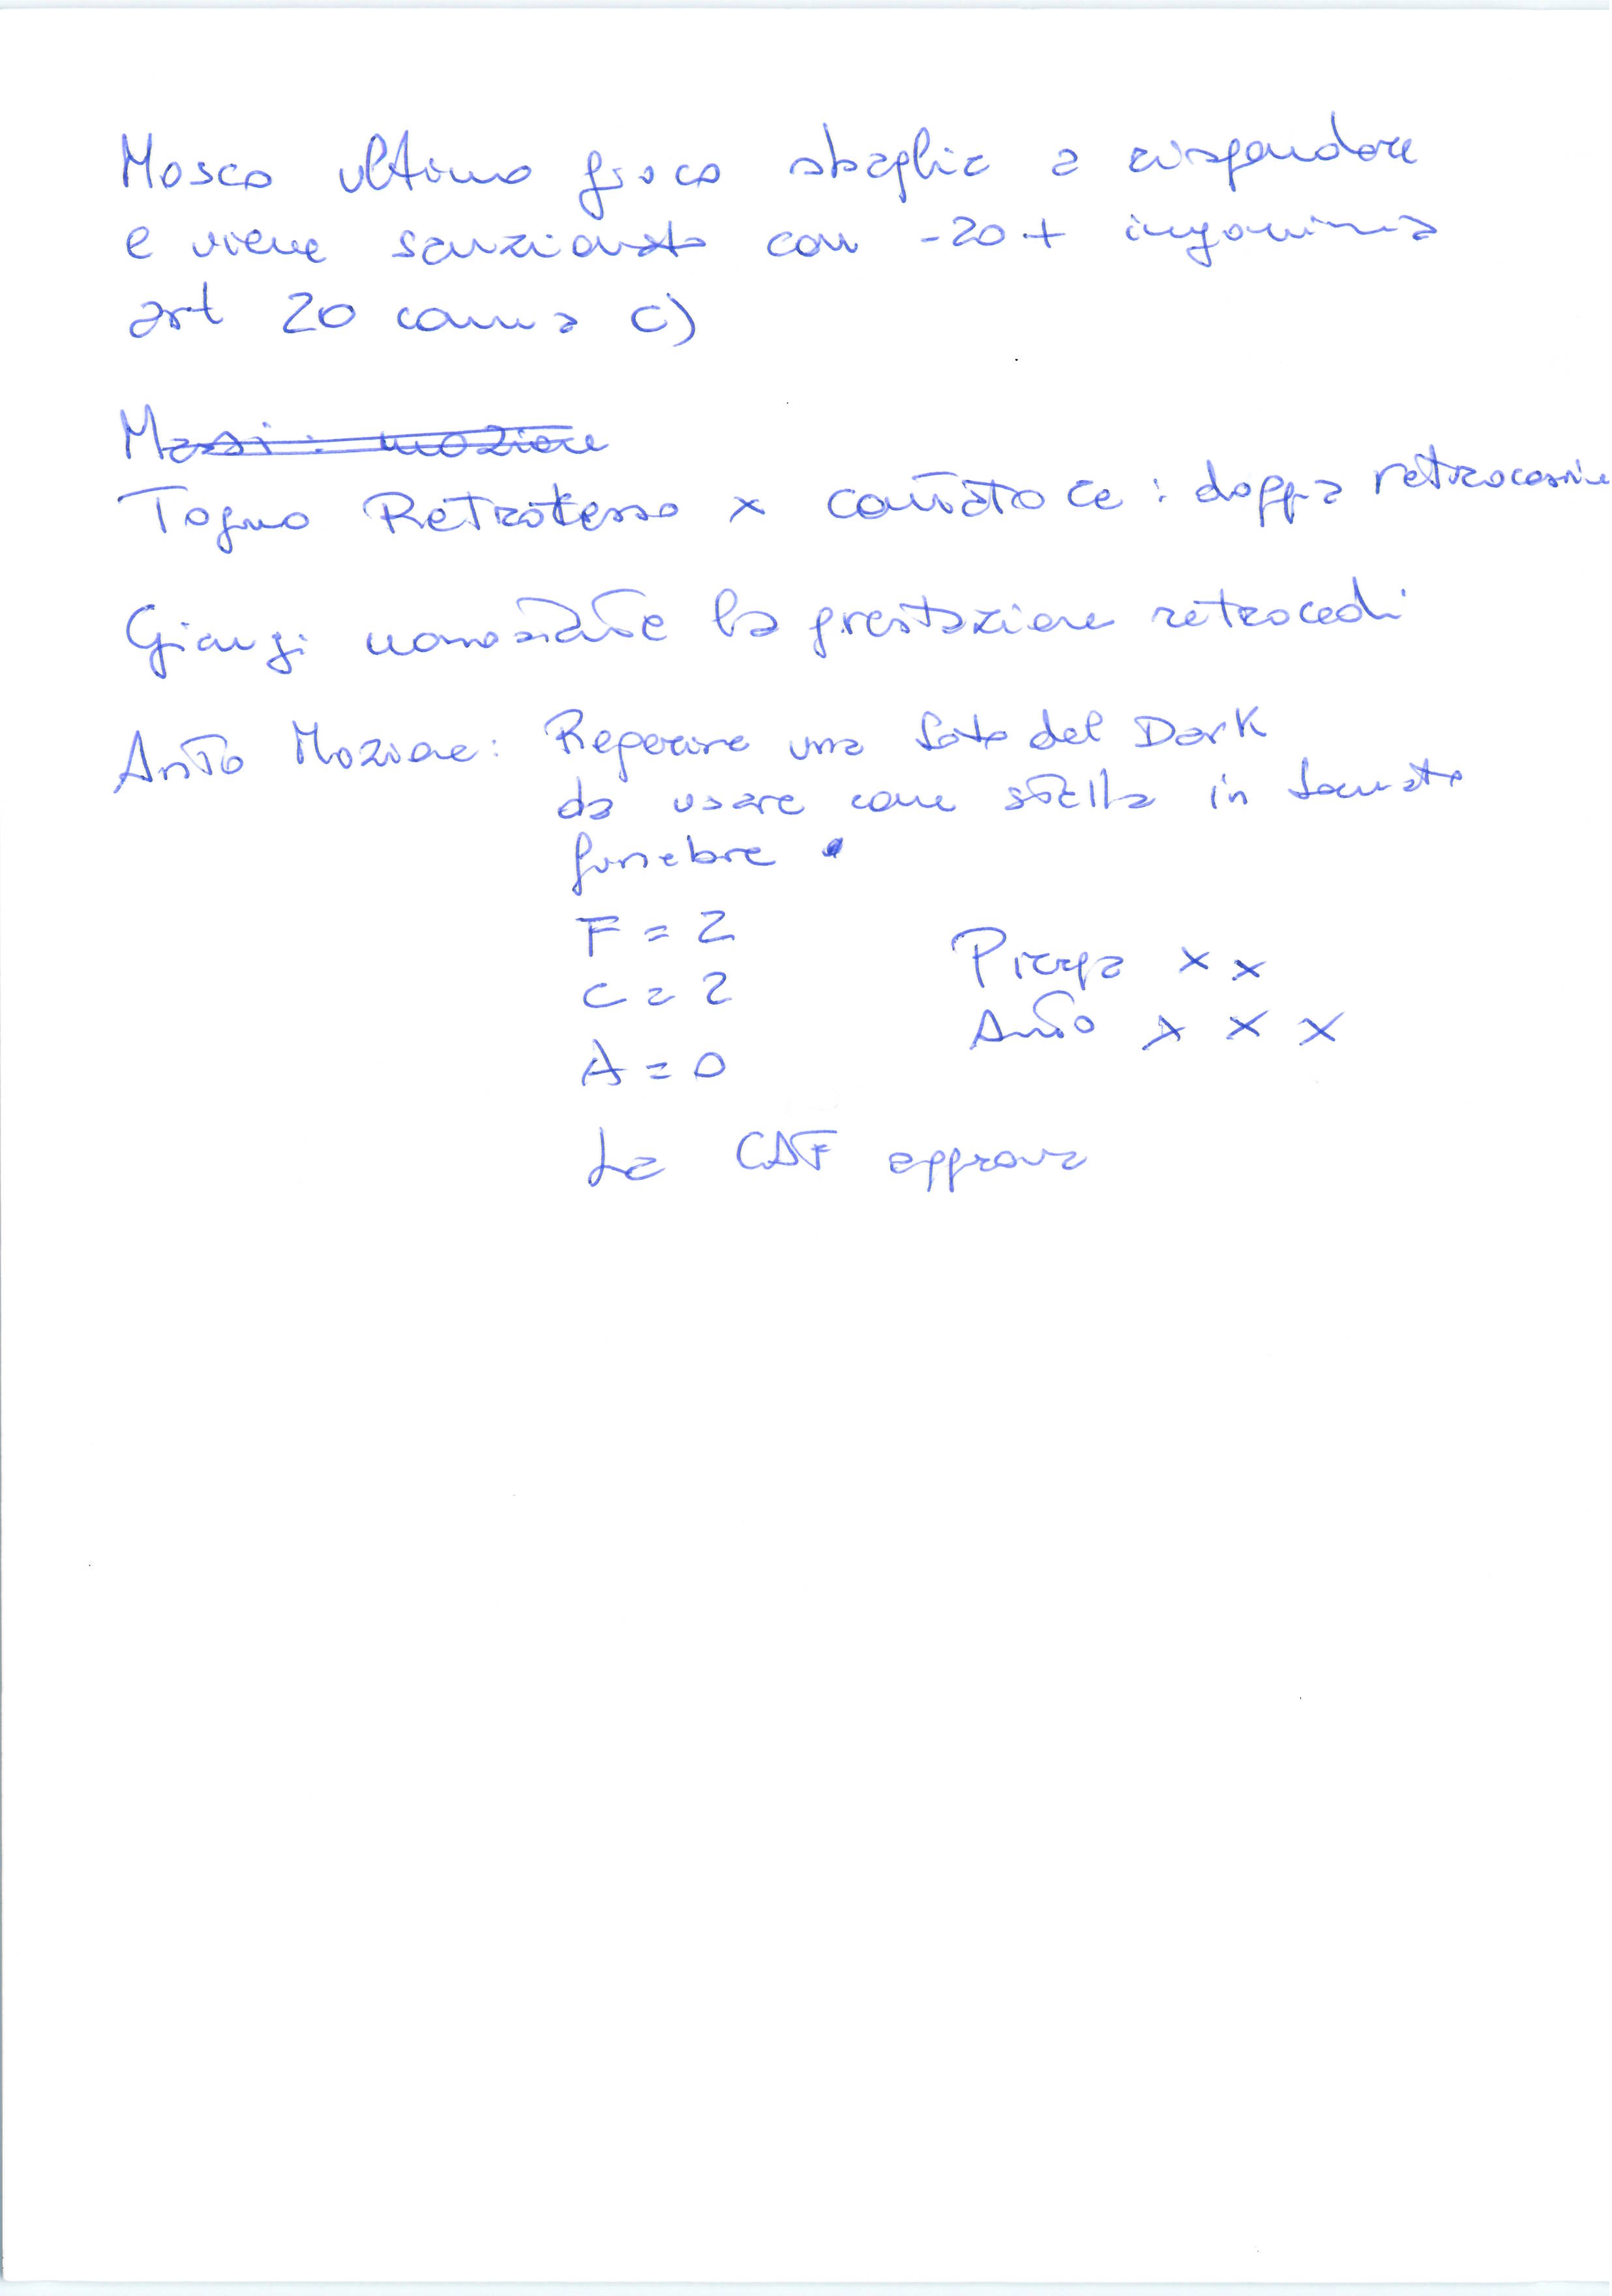 Mosca ultimo gioco sbaglia a rispondere
e viene sanzionato con -20 + ingominia
art 20 comma c)
Massi: mozione
Togno Retrocesso x cantatore: doppia retrocessione
Giangi nonostante la prestazione retrocedi
Anto Mozione: Reperire una foto del Dark
da usare come stella in formato
funebre
F = 2
C = 2
A = 0
Pierpa x x
Anto x x x
La CAF approva